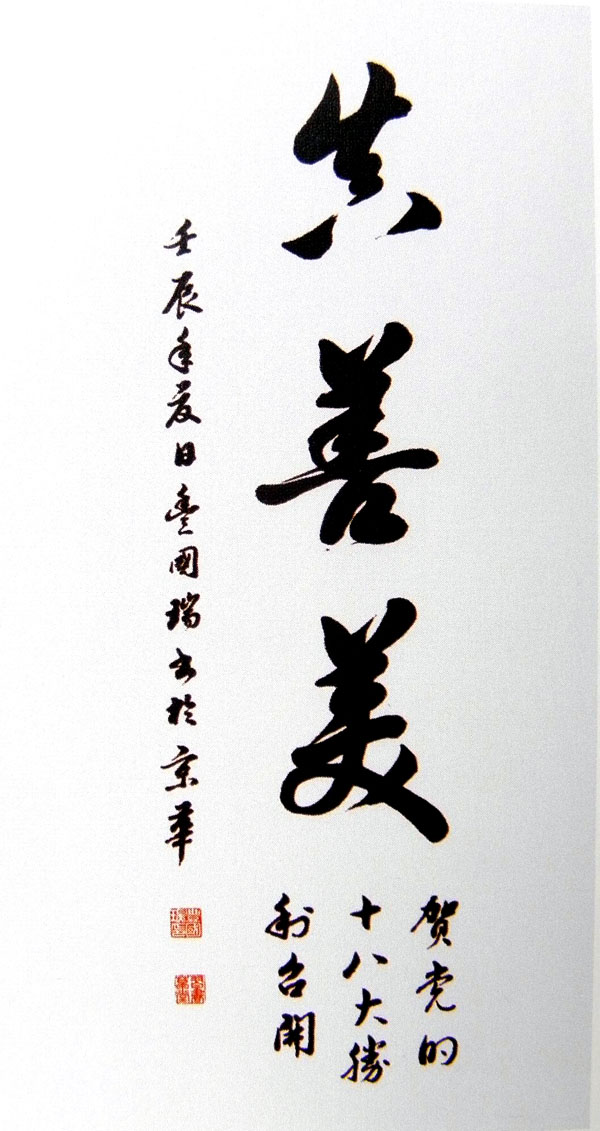 真善美
贺党的
十八大勝
利召開
壬辰年夏日豊國瑞书於京華